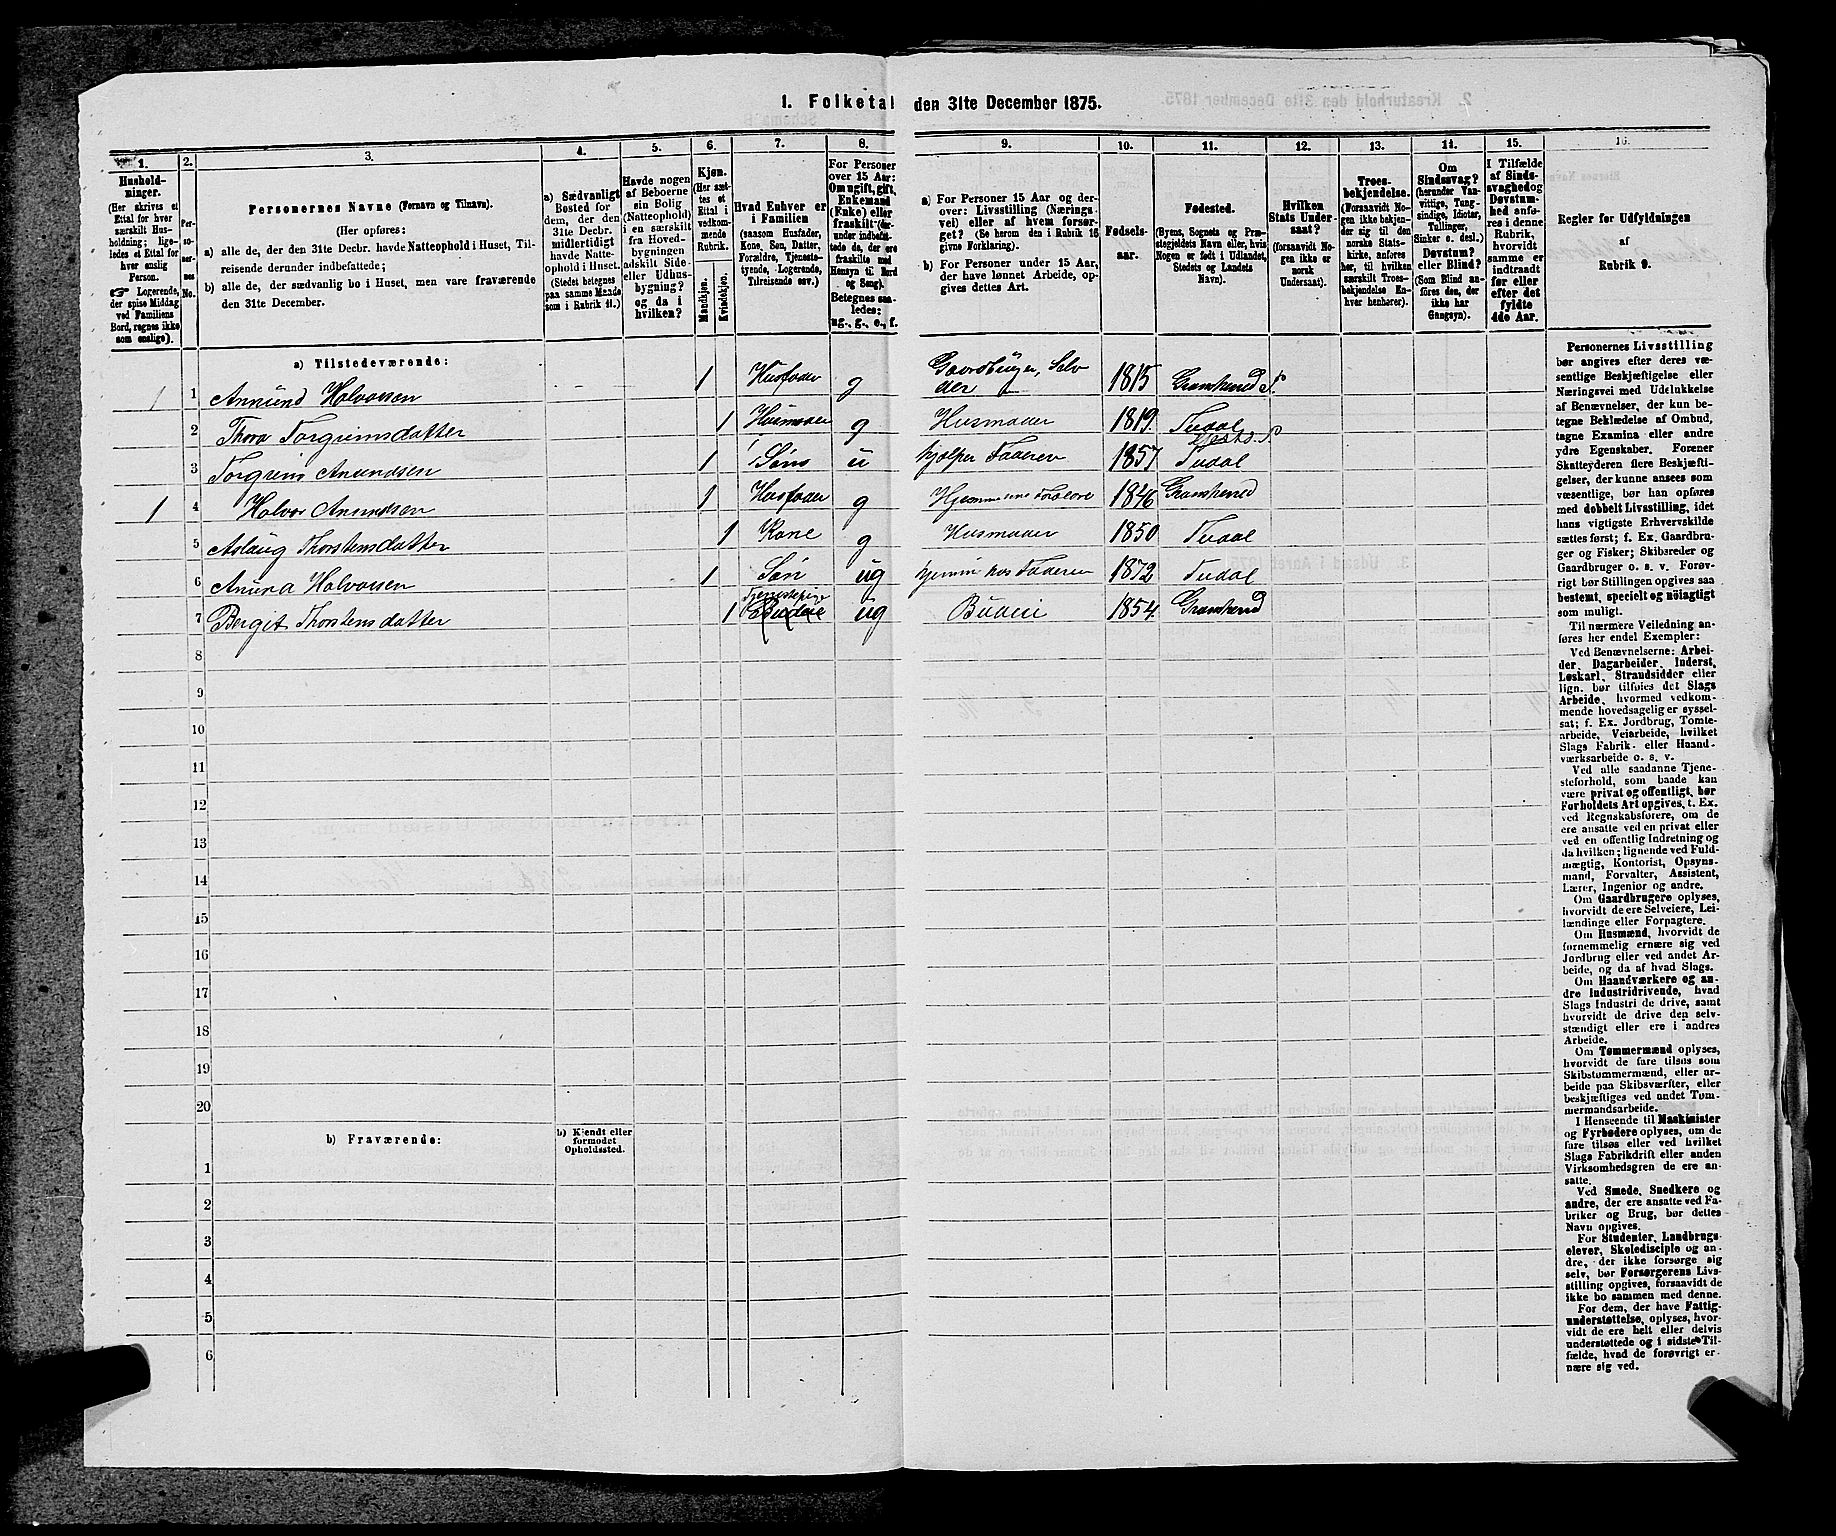 1. Folketal den 31te December 1875.
1.
Hushold-
ninger.
(Her skrives et
Ettal for hver
særskilt Hus-
holdning; lige-
ledes et Ettal for
hver enslig
Person.
☞ Logerende,
der spise Middag
ved Familiens
Bord, regnes ikke
som enslige).
2.
Per-
so-
ner-
nes
No.
3.
Personernes Navne (Fornavn og Tilnavn).
(Her opføres:
a) alle de, der den 31te Decbr. havde Natteophold i Huset, Til-
reisende derunder indbefattede;
b) alle de, der sædvanlig bo i Huset, men vare fraværende
den 31te December.
4.
a) Sædvanligt
Bosted for
dem, der den
31te Decbr.
midlertidigt
havde Natte-
ophold i Huset.
(Stedet betegnes
paa samme Maade
som i Rubrik 11.)
5.
Havde nogen
af Beboerne
sin Bolig
(Natteophold)
i en særskilt
fra Hoved-
bygningen
adskilt Side-
eller Udhus-
bygning?
og da i
hvilken?
6.
Kjøn.
(Her sæt-
tes et
Ettal i
vedkom-
mende
Rubrik.
Mandkjøn.
Kvindekjøn.
7.
Hvad Enhver er
i Familien
(saasom Husfader,
Kone, Søn, Datter,
Forældre, Tjeneste-
tyende, Logerende,
Tilreisende osv.)
8.
For Personer
over 15 Aar:
Om ugift, gift,
Enkemand
(Enke) eller
fraskilt
Betegnes saa-
ledes:
ug., g., e., f.
9.
a) For Personer 15 Aar og der-
over: Livsstilling (Nærings-
vei) eller af hvem forsør-
get? (Se herom den i Rubrik 16
givne Forklaring).
b) For Personer under 15 Aar,
der have lønnet Arbeide, op-
gives dettes Art.
10.
Fødsels-
aar.
11.
Fødested.
(Byens, Sognets og Præ-
stegjeldets Navn eller, hvis
Nogen er født i Udlandet,
Stedets og Landets
Navn).
12.
Hvilken
Stats Under-
saat?
(forsaavidt No-
gen ikke er
norsk
Undersaat).
13.
Troes-
bekjendelse.
(Forsaavidt No-
gen ikke bekjen-
der sig til den
norske Stats-
kirke, anføres
her, til hvilken
særskilt Troes-
bekjendelse En-
hver henhører).
14.
Om
Sindssvag?
(herunder Van-
vittige, Tung-
sindige, Idioter,
Tullinger,
Sinker o. desl.)
Døvstum?
eller Blind?
(Som Blind an-
føres den, der
ikke har
Gangsyn).
15.
I Tilfælde
af Sinds-
svaghed og
Døvstum-
hed anfø-
res i denne
Rubrik,
hvorvidt
samme er
indtraadt
før eller
efter det
fyldte
4de Aar.
16.
Regler før Udfyldningen
af
Rubrik 9.
a) Tilstedeværende:
1 1 Annund Halvorsen 1 Husfader g Gaardbruger, Selv
eier 1815 Gransherred P.
2 Thora Torgrimsdatter 1 Husmoder g Husmoder 1819. Tudal
3 Torgrim Anundsen 1 Søn u hjælper Faderen 1857 Tudal
1 4 Halvor Anundsen 1 Husfader g Hjemme 1846 Gransherred
5 Aslaug Thorstensdatter 1 Kone g Husmoder 1850 Tudal
6 Anund Halvorsen 1 Søn ug hjemme hos Faderen 1872 Tudal
Tjenestepige
7 Bergit Thorstensdatter 1 Budeie ug Budeie 1854. Gransherred
8
9
10
11
12
13
14
15
16
17
18
19
20
b) Fraværende:
b) Kjendt eller
formodet
Opholdssted.
1
2
3
4
5
6
Personernes Livsstilling
bør angives efter deres væ-
sentlige Beskjæftigelse eller
Næringsvei med Udelukkelse
af Benævnelser, der kun be-
tegne Beklædelse af Ombud,
tagne Examina eller andre
ydre Egenskaber. Forener
Skatteyderen flere Beskjæfti-
gelser, der kunne ansees som
væsentlige, bør han opføres
med dobbelt Livsstilling, idet
hans vigtigste Erhvervskilde
sættes først; f. Ex. Gaardbru-
ger og Fisker; Skibsreder og
Gaardbruger o. s. v. Forøv-
rigt bør Stillingen opgives saa
bestemt, specielt og nöiagtigt
som muligt.
Til nærmere Veiledning an-
føres her endel Exempler:
Ved Benævnelserne: Arbei-
der, Dagarbeider, Inderst,
Løskarl, Strandsidder eller
lign. bør tilføies det Slags
Arbeide, hvormed vedkom-
mende hovedsagelig er syssel-
sat; f. Ex. Jordbrug, Tomte-
arbeide, Veiarbeide, hvilket
Slags Fabrik- eller Haand-
værksarbeide o. s. v.
Ved alle saadanne Tjene-
steforhold, som baade kan
være privat og offentligt, bør
Forholdets Art opgives, t. Ex.
ved Regnskabsførere, om de
ere ansatte ved en privat eller
ved en offentlig Indretning og
da hvilken; lignende ved Fuld-
mægtig, Kontorist, Opsyns-
mand, Forvalter, Assistent,
Lærer, Ingeniør og andre.
Om Gaardbrugere oplyses,
hvorvidt de ere Selveiere, Lei-
lændinge eller Forpagtere.
Om Husmænd, hvorvidt de
fornemmelig ernære sig ved
Jordbrug eller ved andet Ar-
beide, og da af hvad Slags.
Om Haandværkere og an-
dre Industridrivende, hvad
Slags Industri de drive, samt
hvorvidt de drive den selv-
stændigt eller ere i andres
Arbeide.
Om Tømmermænd oplyses,
hvorvidt de fare tilsøs som
Skibstømmermænd, eller ar-
beide paa Skibsværfter, eller
beskjæftiges ved andet Tøm-
mermandsarbeide.
I Henseende til Maskinister
og Fyrbødere oplyses, om de
fare tilsøs eller ved hvilket
Slags Fabrikdrift eller anden
Virksomhedsgren de ere an-
satte.
Ved Smede, Snedkere og
andre, der ere ansatte ved Fa-
briker og Brug, bør dettes
Navn opgives.
For Studenter, Landbrugs-
elever, Skoledisciple og an-
dre, der ikke forsørge sig
selv, bør Forsørgerens Livs-
stilling opgives, forsaavidt de
ikke bo sammen med denne.
For dem, der have Fattig-
understøttelse, oplyses, hvor-
vidt de ere helt eller delvis
understøttede og i sidste Til-
fælde, hvad de forøvrigt er-
nære sig ved.